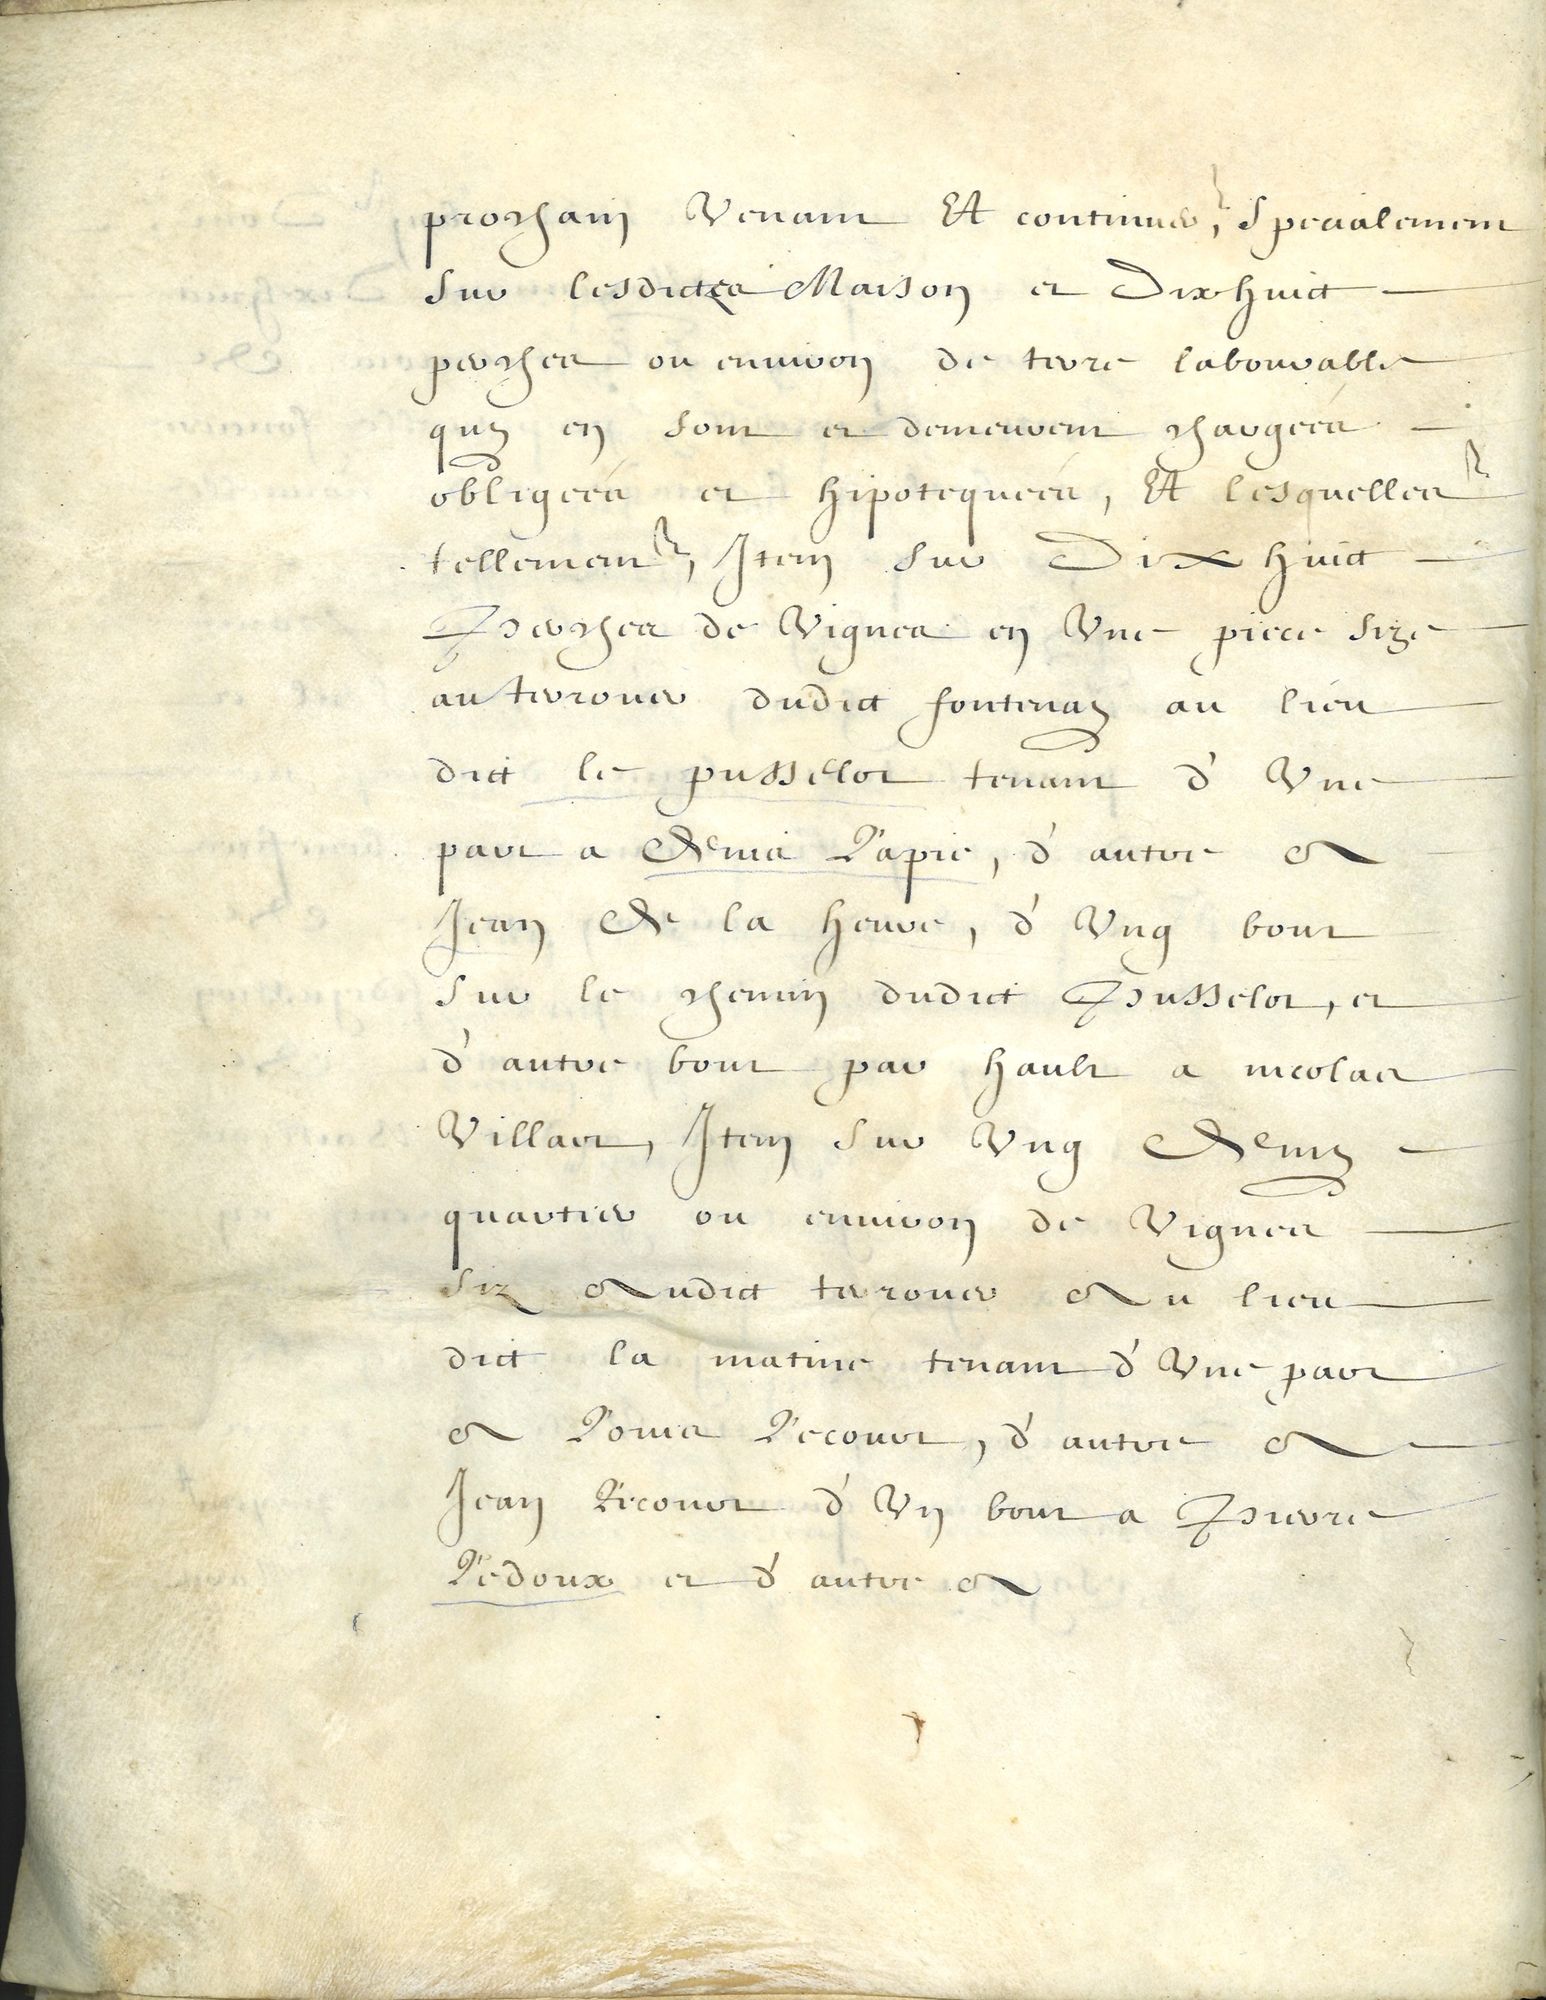 prochain Venant Et continuer, Specialement
Sur lesdictes Maison et Dixhuict
perches ou environ de terre labourable
quy en sont et demeurent chargées
obligeés et hipotequeés, Et lesquelles
tellement, Item Sur Dix huict
Perches de Vignes en Vne piece size
au terrouer dudict fontenay au lieu
dict le pusselot tenant d' Vne
part a Denis Papie, d' autre A
Jean De la heure, d' Vng bout
Sur le chemin dudict Pusselot, et
d' autre bout par hault a nicolas
Villart, Item Sur Vng Demy
quartier ou environ de Vignes
siz Audict terrouer Au lieu
dict la matine tenant d' Vne part
A Louis Lecourt, d' autre A
Jean Lecourt d' Vn bout a Pierre
Ledoux et d' autre A